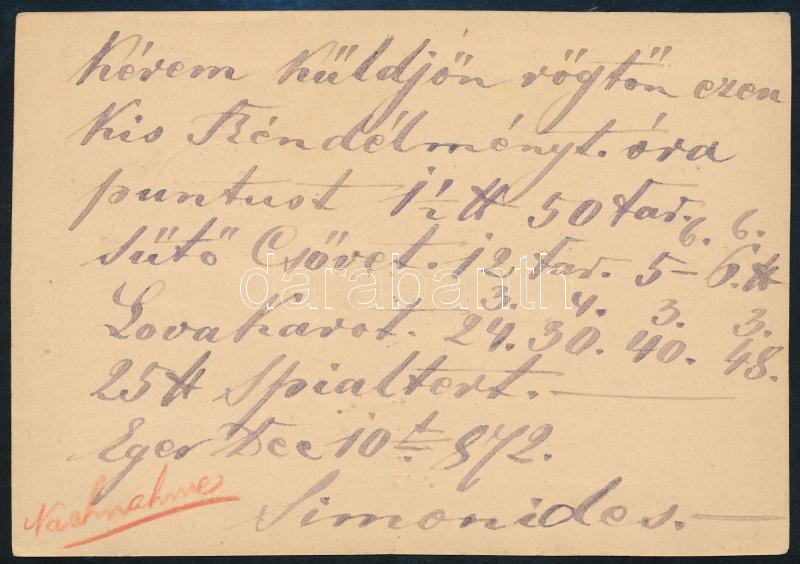 Kérem küldjön rögtön ezen
Kis Réndélményt. óra
puntust 1 1/2 ℔ 50 tar.
6. 6.
sütö Csövet. 12 tar. 5 – 6. ℔
3. 4. 3. 3.
Lovakarot. 24. 30. 40. 48.
25 ℔ Spialtert. —
Eger Dec 10t. 872.
Simonides. —
Nachnahme
darabanth